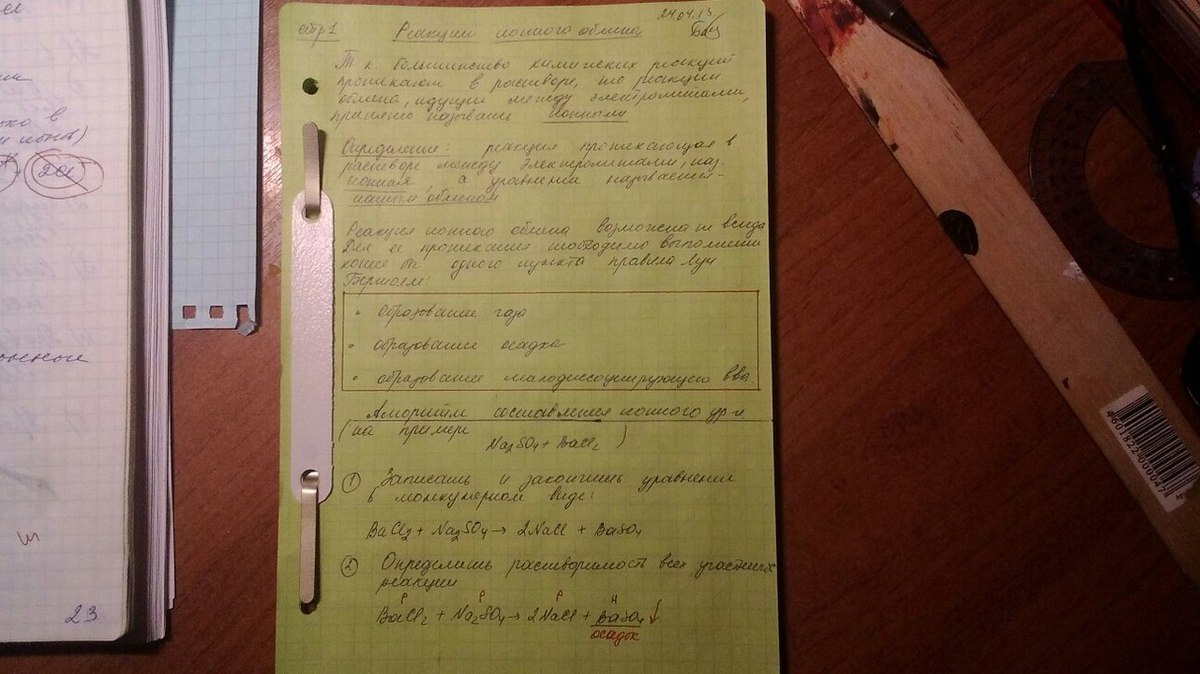 стр 1 Реакции ионного обмена 24.04.13
Т к большинство химических реакций
протекают в растворе, то реакции
обмена, идущие между электролитами,
принято называть ионными
Определение: реакция протекающая в
растворе между электролитами, наз.
ионная, а уравнение называется -
ионным обменом
Реакция ионного обмена возможна не всегда
Для ее протекания необходимо выполнение
одного пункта правила
Бертолле:
• образование газа
• образование осадка
• образование малодиссоциирующего в-ва
Алгоритм составления ионного ур-я
(на примере Na₂SO₄ + BaCl₂)
① Записать и закончить уравнение
в молекулярном виде:
BaCl₂ + Na₂SO₄ → 2NaCl + BaSO₄
② Определить растворимость всех участников
реакции
Р Р Р Н
BaCl₂ + Na₂SO₄ → 2NaCl + BaSO₄ ↓
осадок
но в
ионов)
2Cl
23
4601822000047